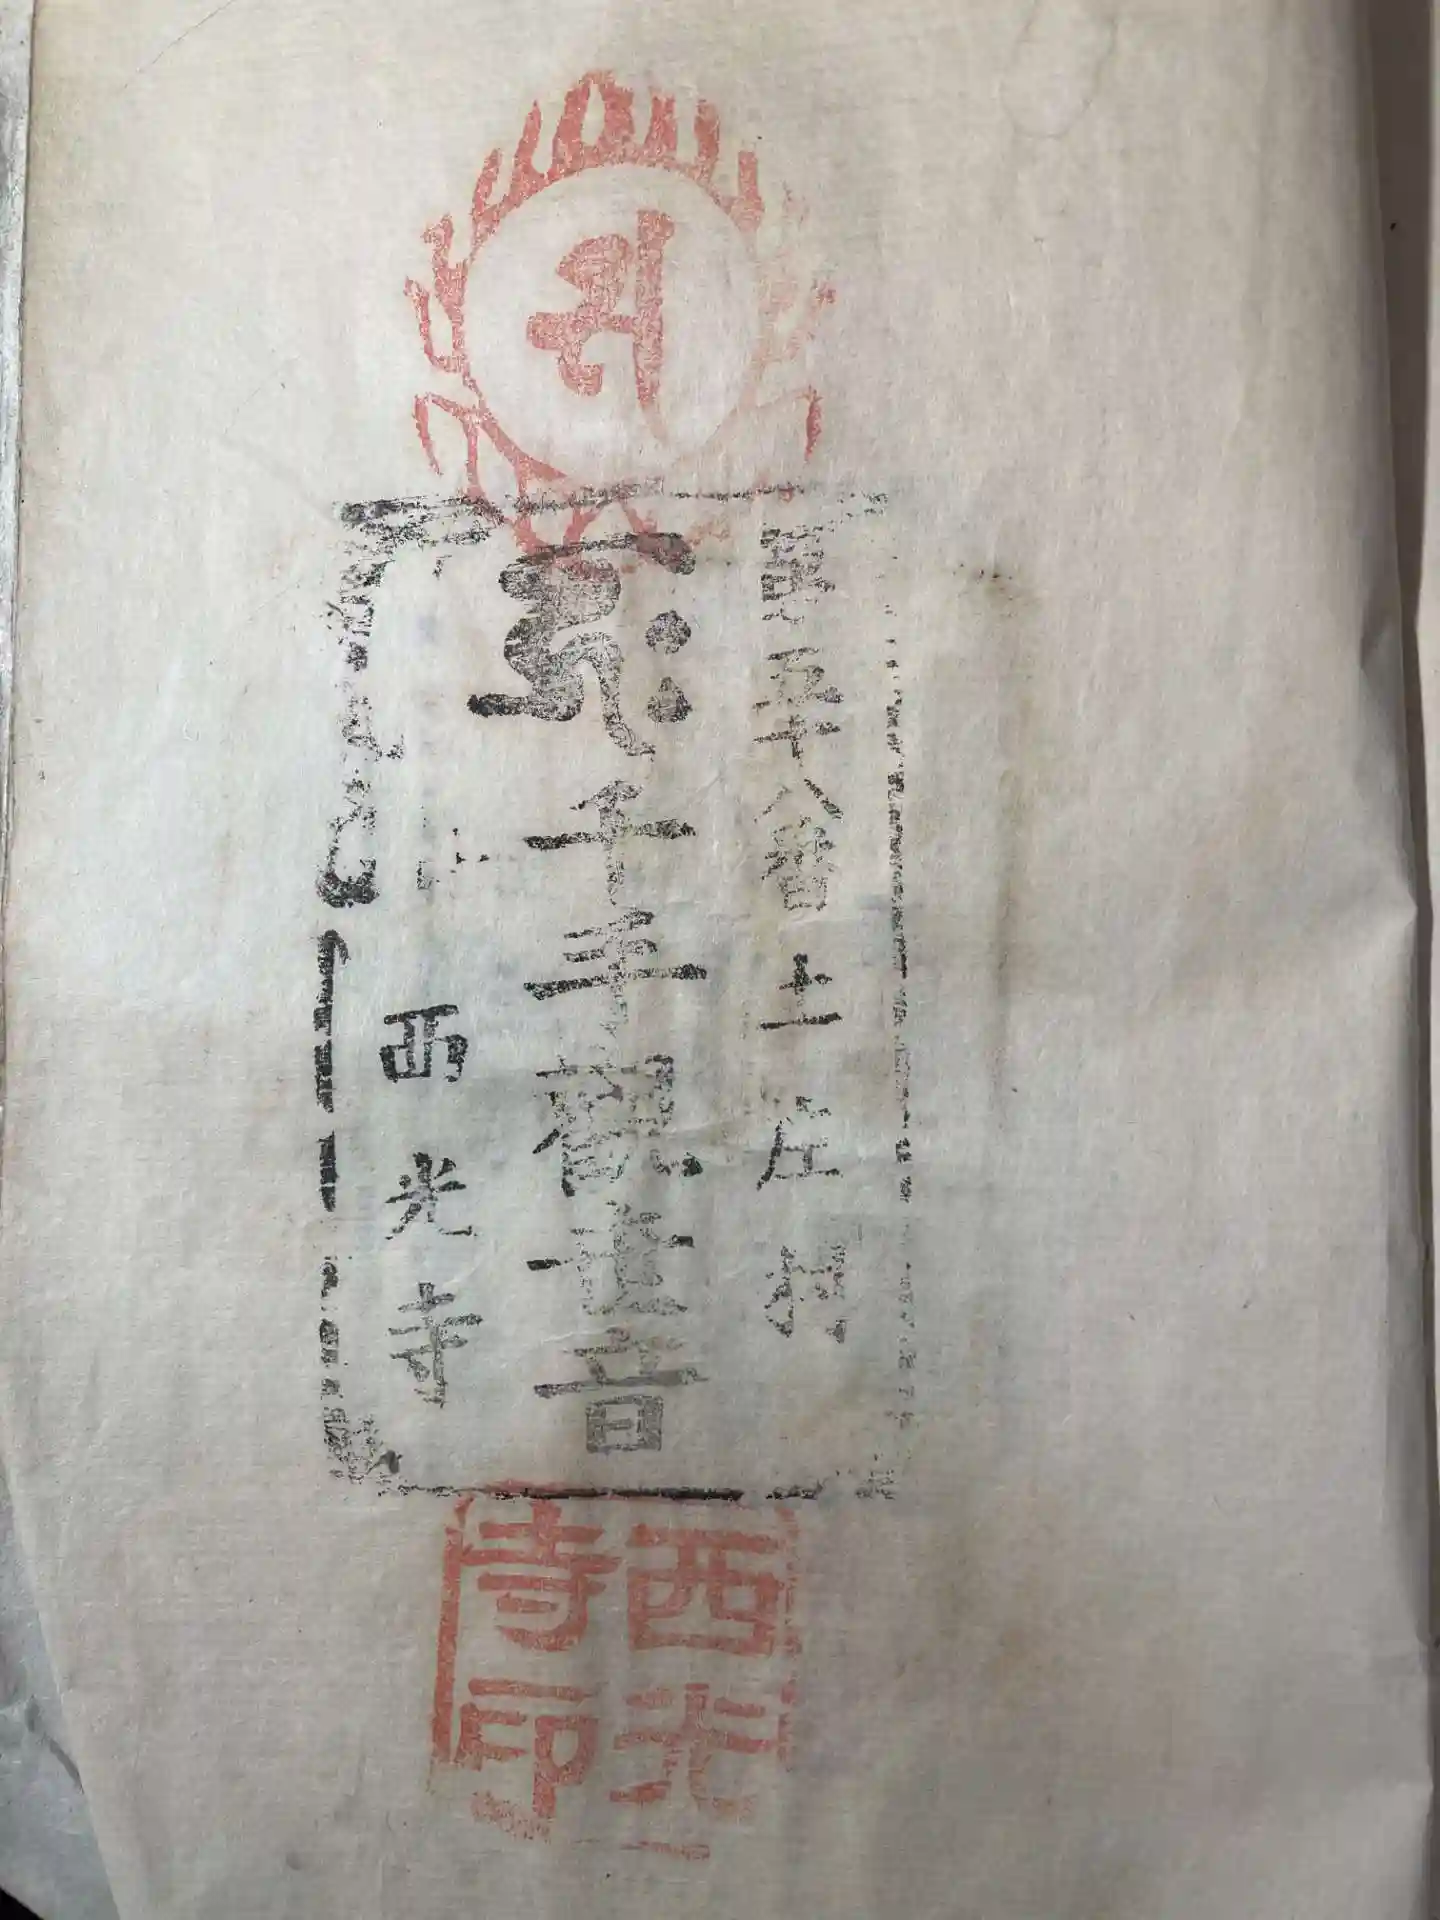 第五十八番 土庄村
𑖮𑖿𑖨𑖱𑖾 千手觀世音
西光寺
西光
寺印